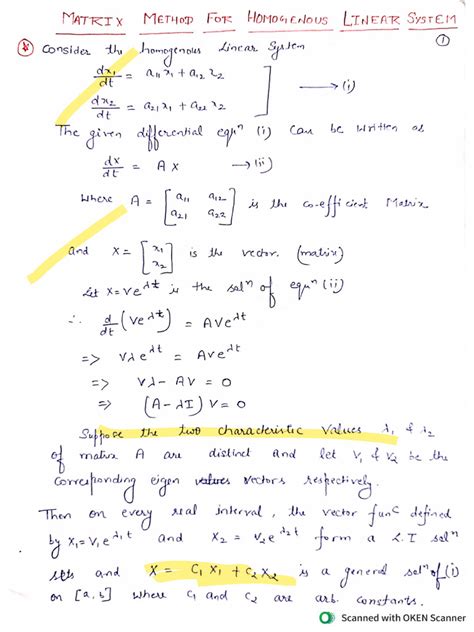 MATRIX METHOD FOR HOMOGENOUS LINEAR SYSTEM
①
Consider the homogenous Linear System
dx₁/dt = a₁₁x₁ + a₁₂x₂
→ (i)
dx₂/dt = a₂₁x₁ + a₂₂x₂
The given differential eqⁿ (i) can be written as
dx/dt = AX → (ii)
Where A = [a₁₁ a₁₂ a₂₁ a₂₂] is the co-efficient Matrix
and X = [x₁ x₂] is the vector. (matrix)
Let X = Ve^λt is the solⁿ of equⁿ (ii)
∴ d/dt (Ve^λt) = AVe^λt
=> Vλe^λt = AVe^λt
=> Vλ - AV = 0
=> (A - λI) V = 0
Suppose the two characteristic values λ₁ & λ₂
of matrix A are distinct and let V₁ & V₂ be the
corresponding eigen values vectors respectively.
Then on every real interval, the vector funᶜ defined
by X₁ = V₁e^λ₁t and X₂ = V₂e^λ₂t form a L.I solⁿ
sets and X = C₁X₁ + C₂X₂ is a general solⁿ of (i)
on [a, b] where C₁ and C₂ are arb. constants.
Scanned with OKEN Scanner